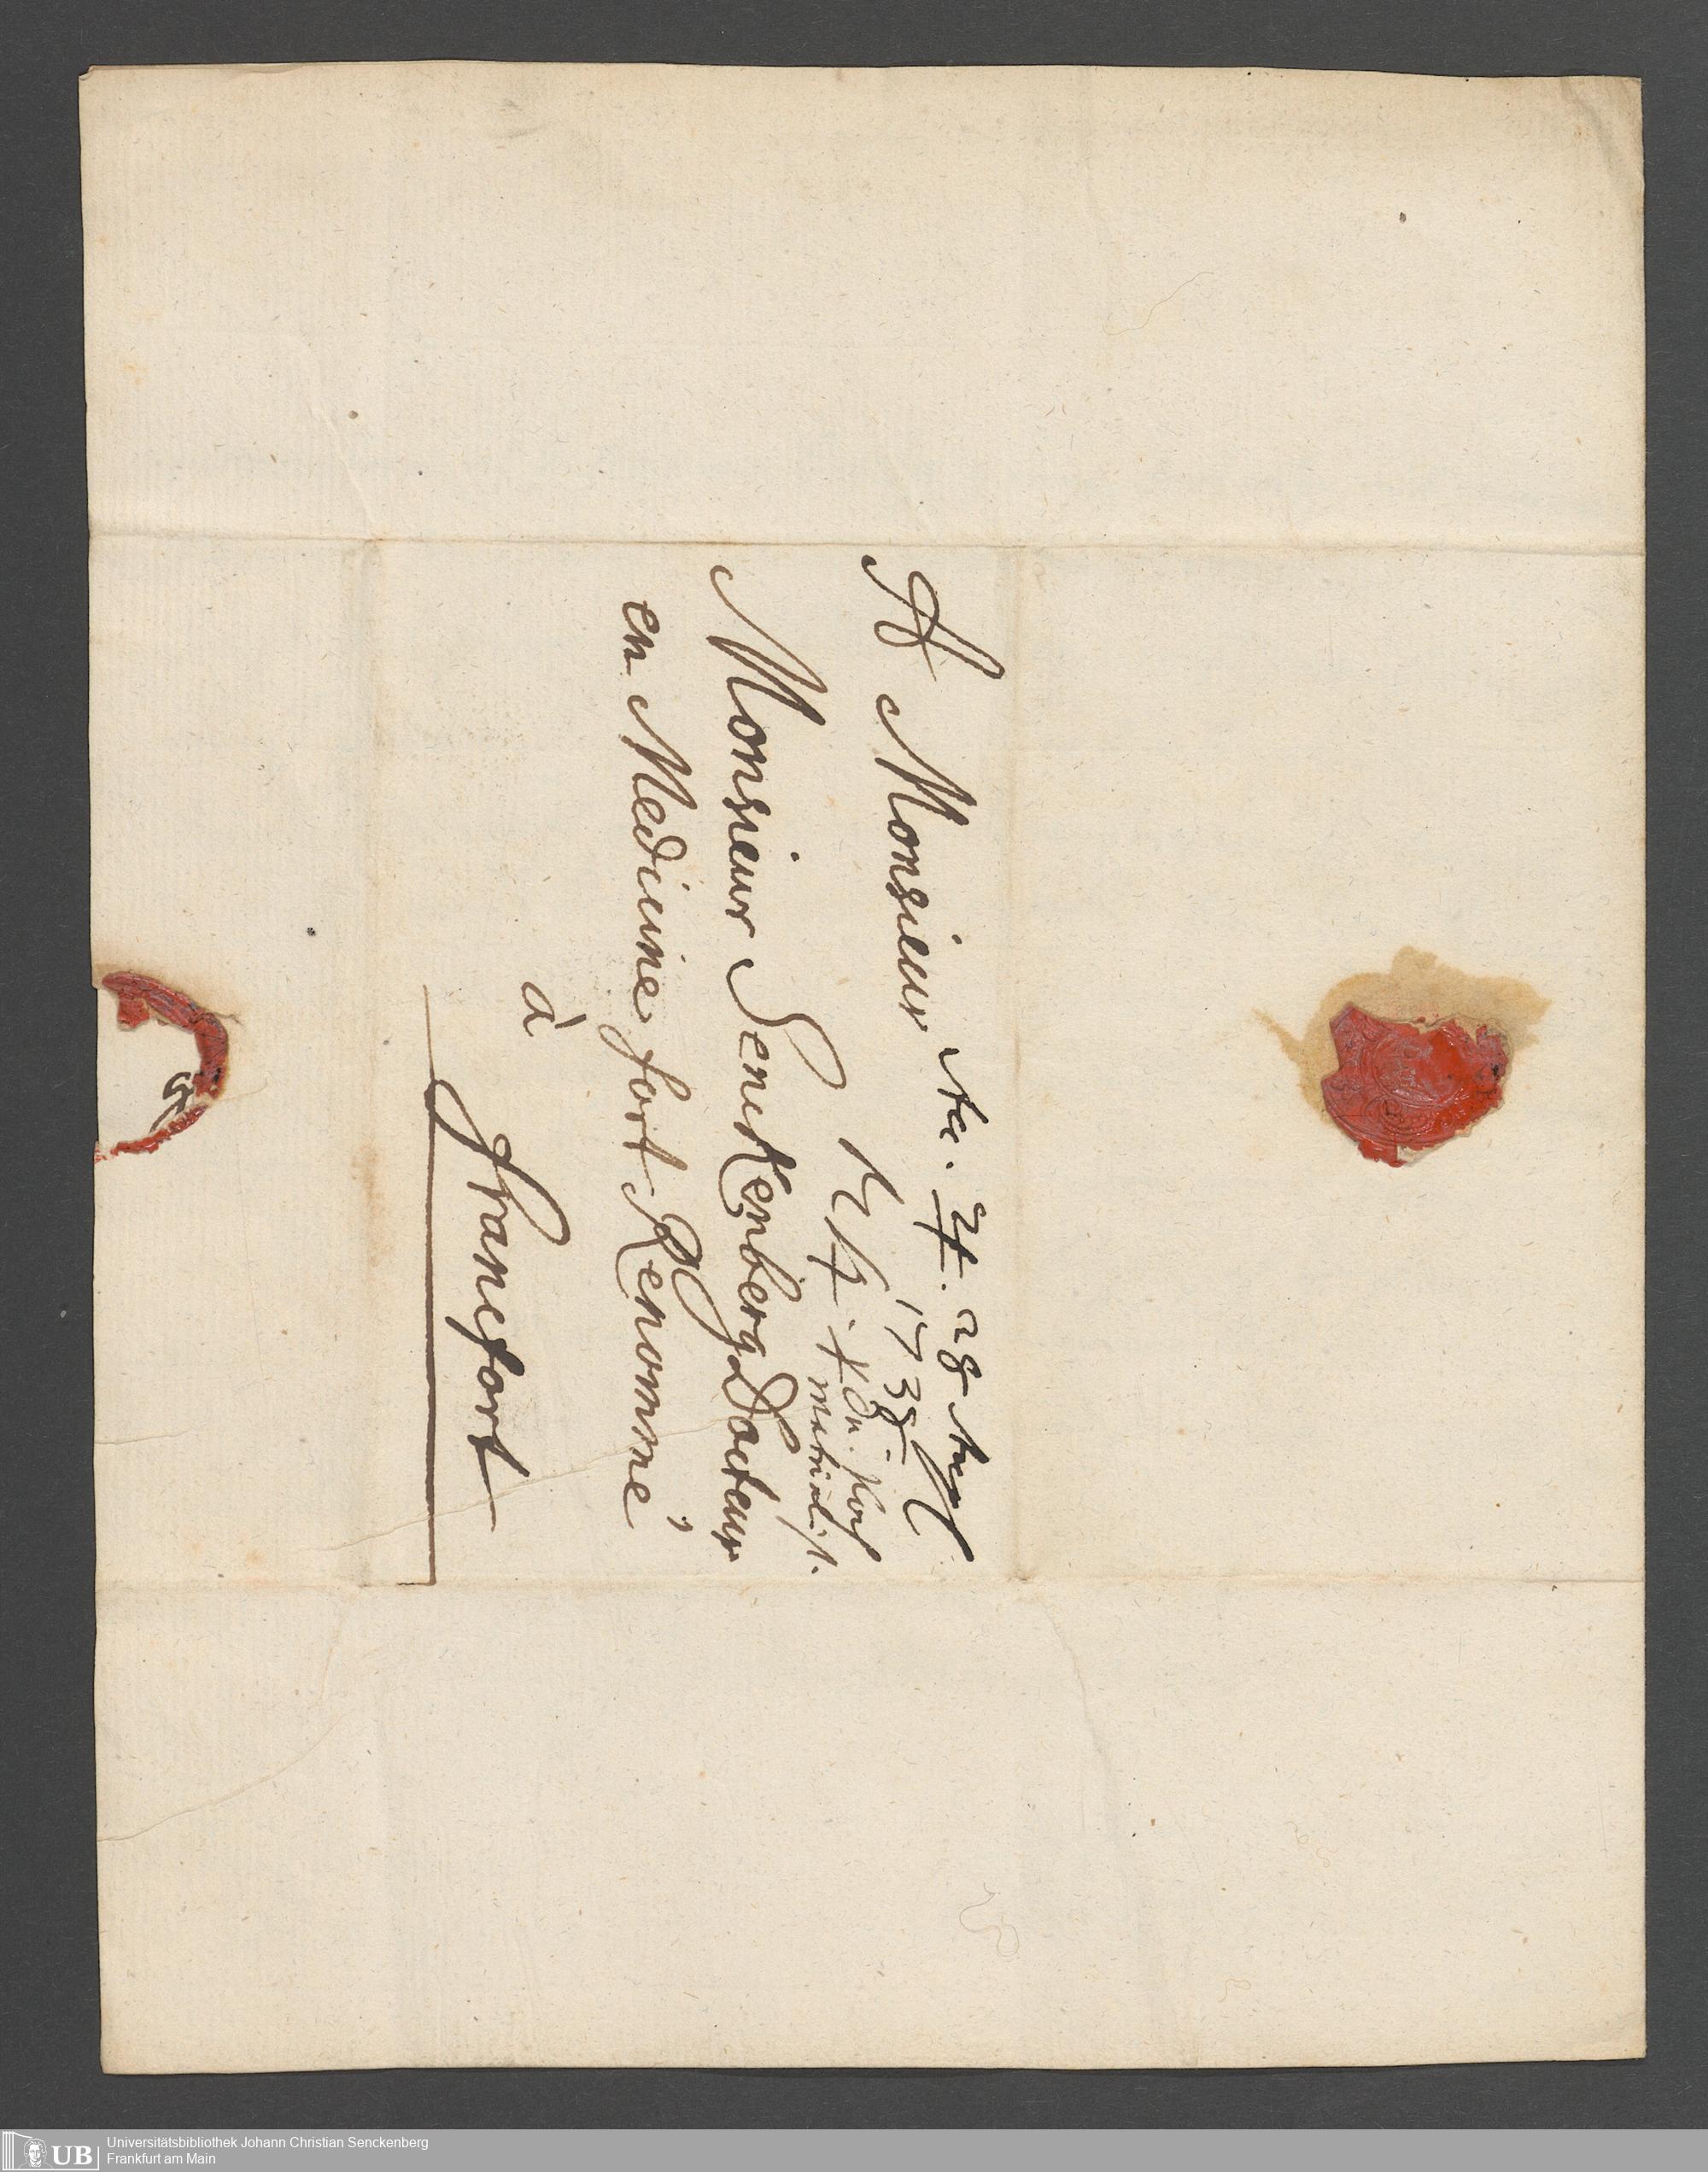 A Monsieur
Acc. ♃. 28 Aug
1738.
Monsieur Senckenberg Docteur
en Medicine fort Renommé
à
Francfort
UB
Universitätsbibliothek Johann Christian Senckenberg
Frankfurt am Main